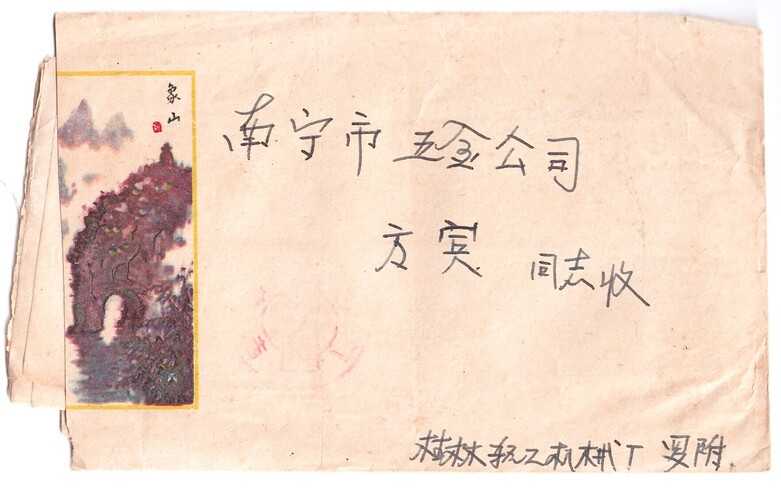 象山
南宁市五金公司
方宾 同志收
桂林轻工机械厂